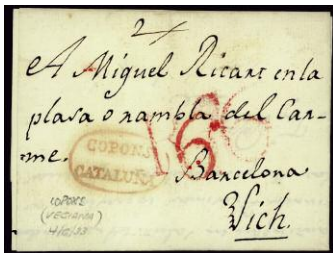 A Miguel Ricart en la
plasa o rambla del Car-
me.
Barcelona
Vich.
COPONS
CATALUÑA
COPONS
(VEGUERIA)